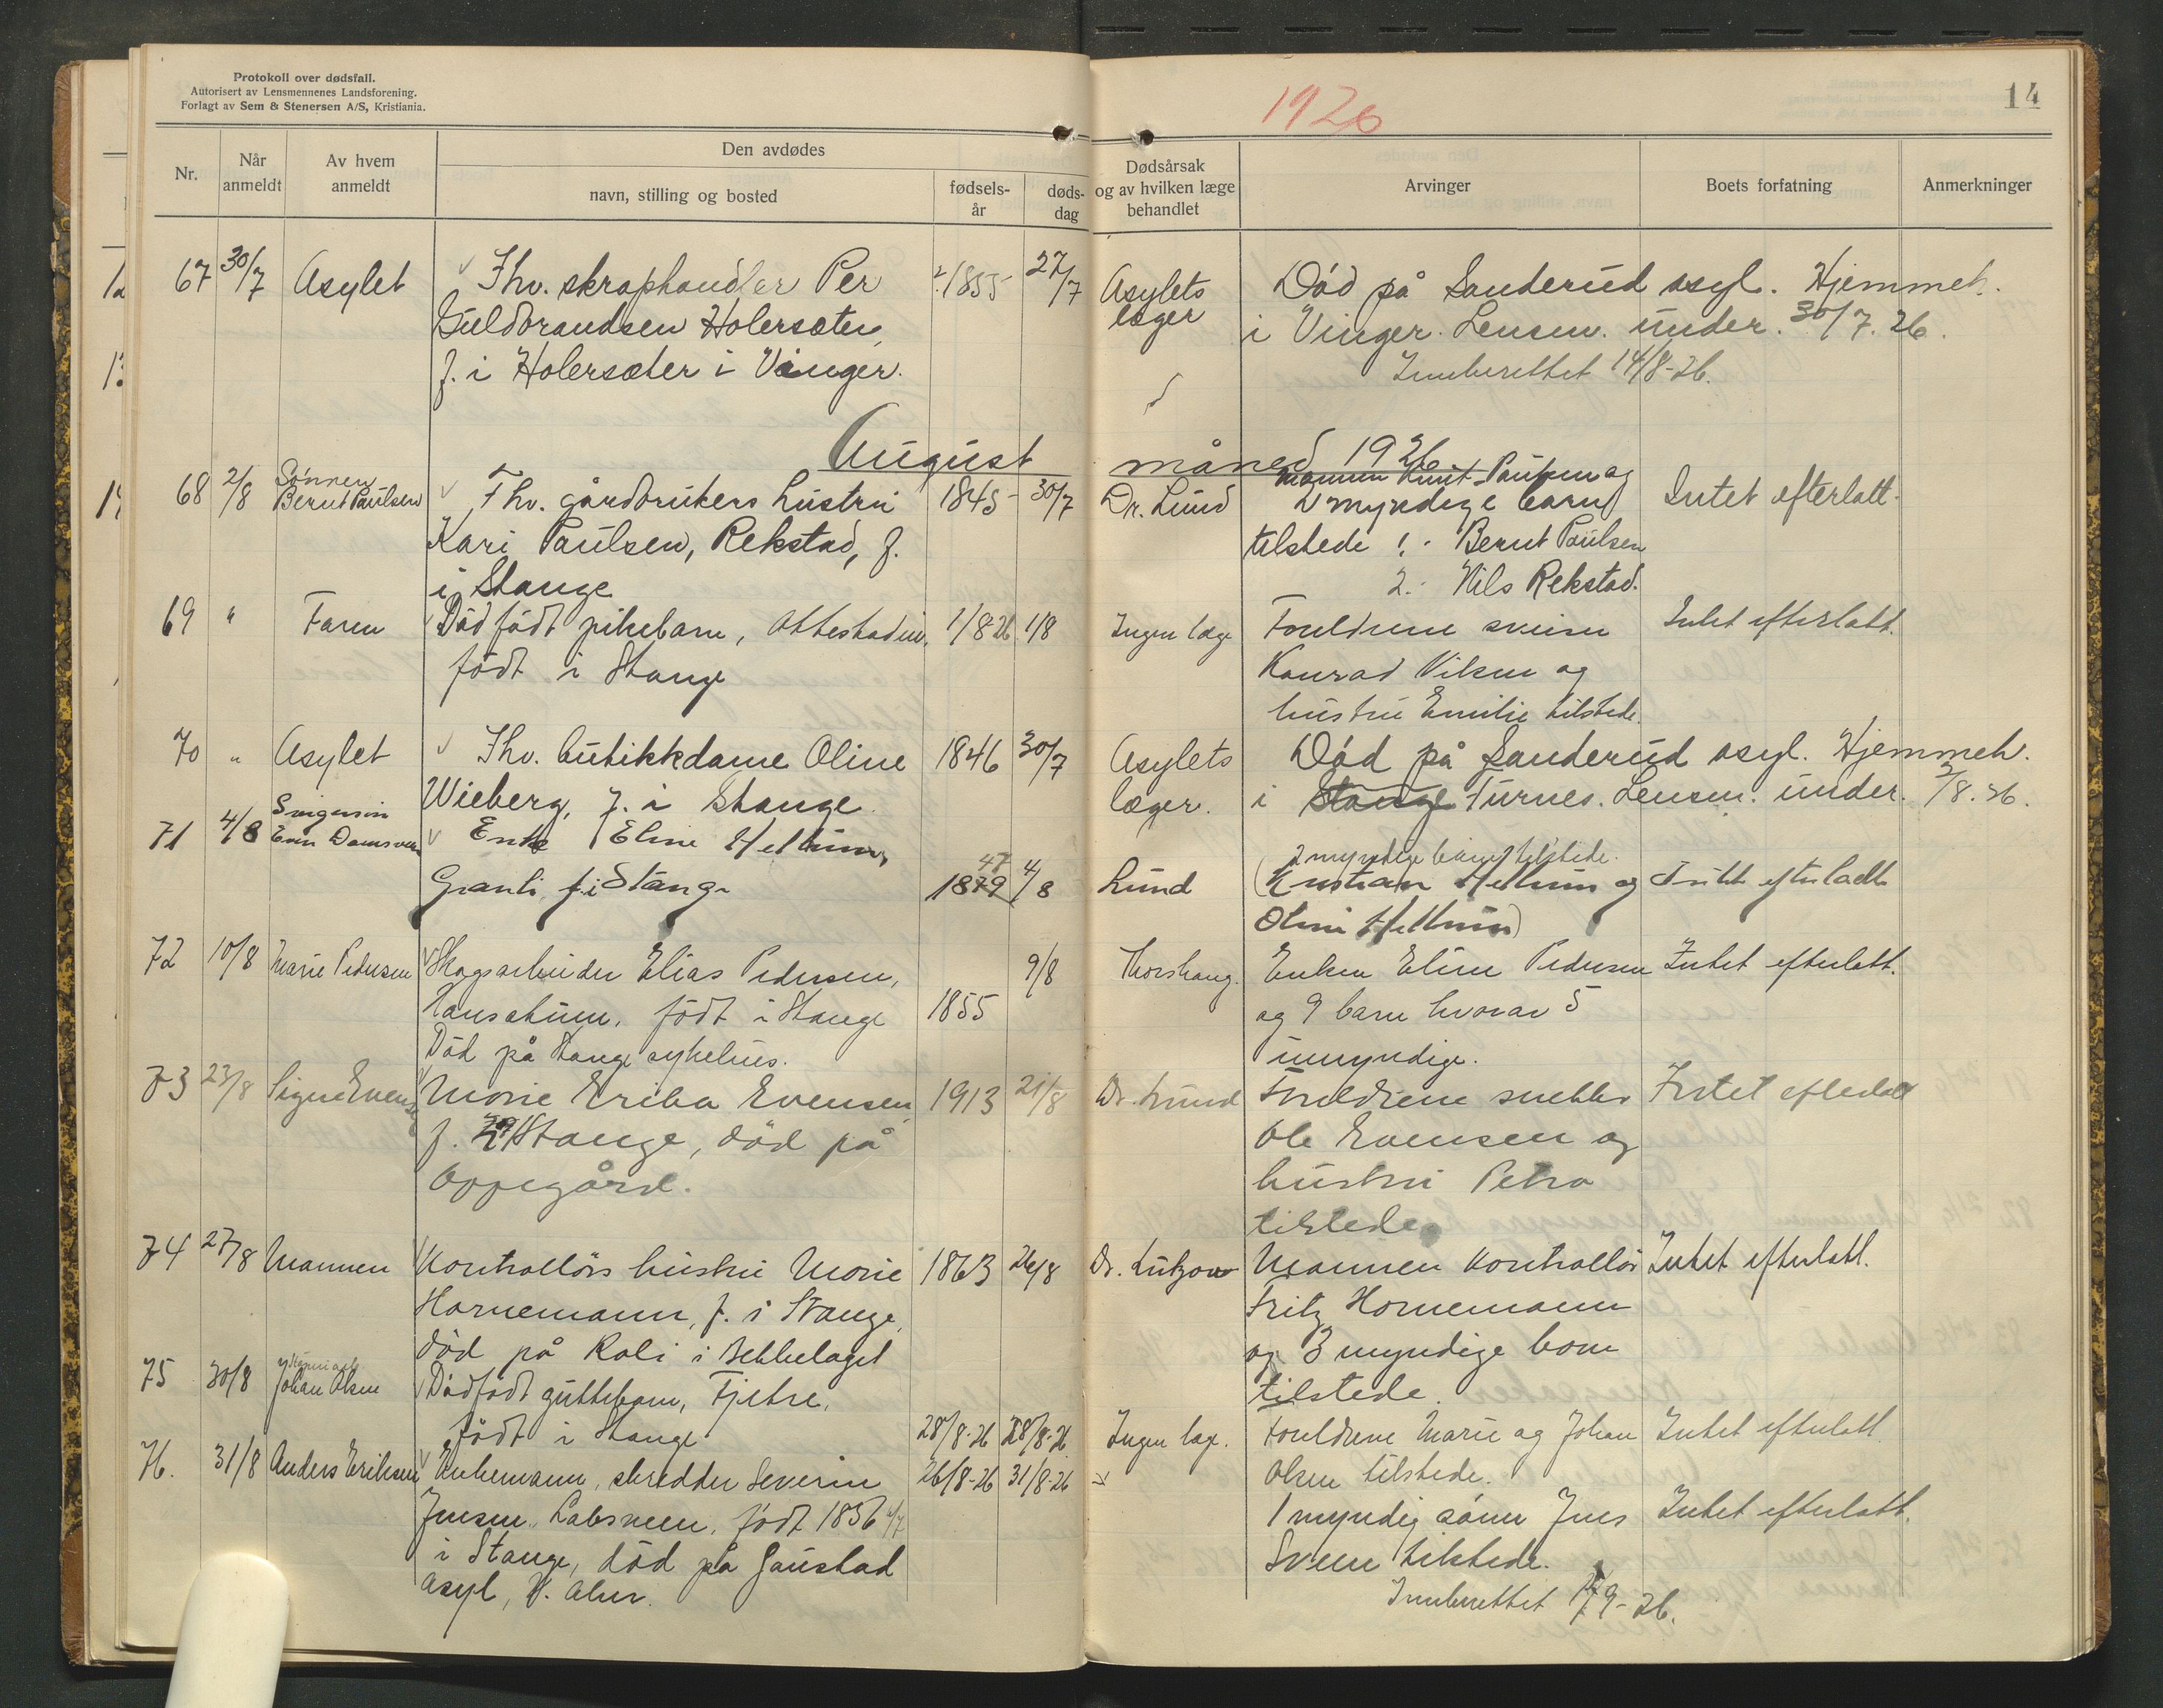 Protokoll over dødsfall.
Autorisert av Lensmennenes Landsforening.
Forlagt av Sem & Stenersen A/S, Kristiania.
1926
14
Nr.
Når anmeldt
Av hvem anmeldt
Den avdødes
navn, stilling og bosted
fødsels-år
døds-dag
Dødsårsak og av hvilken læge behandlet
Arvinger
Boets forfatning
Anmerkninger
67 30/7 Asylet Fhv. skraphandler Per 1855 27/7 Asylets Död på Sanderud asyl. Hjemmeh.
Guldbrandsen Holersæter, læger i Vinger. Lensm. under. 30/7. 26.
f. i Holersæter i Vinger. Innberettet 14/8-26.
August måned 1926
Sønnen mannen Knut Paulsen og
68 2/8 Bernt Paulsen Fhv. gårdbrukers hustru 1845 30/7 Dr. Lund 2 myndige barn Intet efterlatt.
Kari Paulsen, Rekstad, f. tilstede 1. Bernt Paulsen
i Stange 2. Nils Rekstad.
69 " Faren Dödfödt pikebarn, 1/8 26 1/8 Ingen læge Foreldrene Intet efterlatt.
födt i Stange Konrad Vilsen og
hustru Emilie tilstede.
70 " Asylet Fhv. butikkdame Oline 1846 30/7 Asylets Död på Sanderud asyl. Hjemmeh.
Wieberg, f. i Stange læger. i Stange Furnes. Lensm. under. 2/8. 26.
71 4/8 Enke Eline Hellum,
2 myndige barn tilstede.
47
Granli f. i Stange 1879 4/8 Lund (Kristian Hellum og Intet efterladt
Hellum)
72 10/8 Marie Pedersen Skogsarbeider Elias Pedersen, 9/8 Thorshaug. Enken Eline Pedersen Intet efterlatt.
födt i Stange 1855 og 9 barn hvorav 5
Död på Stange sykehus. umyndige.
73 23/8 Signe Evensen Marie Erika Evensen 1913 21/8 Dr. Lund Foreldrene snekker Intet efterlatt
f. Stange, död på Ole Evensen og
Oppegård. hustru Petra
tilstede
74 27/8 Mannen Kontrollörs hustru Marie 1863 26/8 Dr. Lützow Mannen kontrollör Intet efterlatt.
Hornemann, f. i Stange, Fritz Hornemann
död på Roli i Bekkelaget og 3 myndige barn
75 30/8 Johan Olsen Dödfödt guttebarn, Fjetre, tilstede.
födt i Stange 28/8-26 28/8-26 Ingen læge. Foreldrene Marie og Johan Intet efterlatt
76. 31/8 Anders Eriksen Enkemann, skredder Severin 26/8-26 31/8-26 Olsen tilstede.
Jensen Labsveen, födt 1856 4/7 1 myndig sönn Jens Intet efterlatt.
i Stange, död på Gaustad Sveen tilstede.
asyl, V. Aker. Innberettet 9-26.